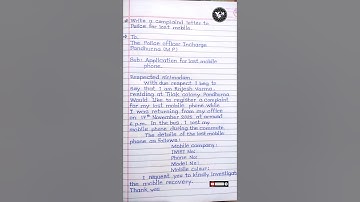 Write a complaint letter to
Police for lost mobile.
To,
The Police officer Incharge
Pandhurna (M.P.)
Sub:- Application for lost mobile
phone.
Respected sir/madam,
With due respect I beg to
say that, I am Rajesh Verma
residing at Tilak colony Pandhurna
Would like to register a complaint
for my lost mobile phone while
I was returning from my office
on 17th November 2025 at around
6 p.m. in the bus. I lost my
mobile phone during the commute.
The details of the lost mobile
phone as follows:
Mobile company:
IMEI No:
Phone No:
Model No:
Mobile colour:
I request you to kindly investigate
the mobile recovery.
Thank you